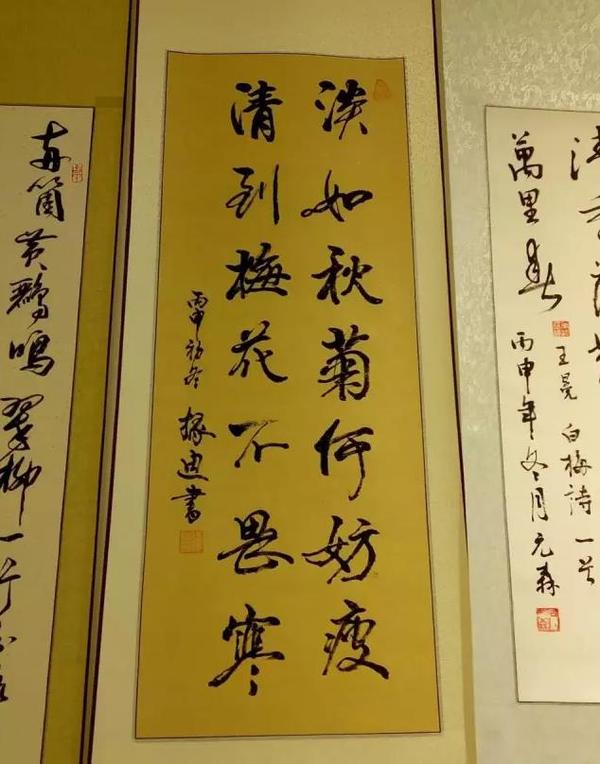 清香發
萬里春
王冕 白梅詩一首
丙申年冬月元森
淡如秋菊何妨瘦
清到梅花不畏寒
丙申初冬 迪書
两箇黄鸝鳴翠柳一行白